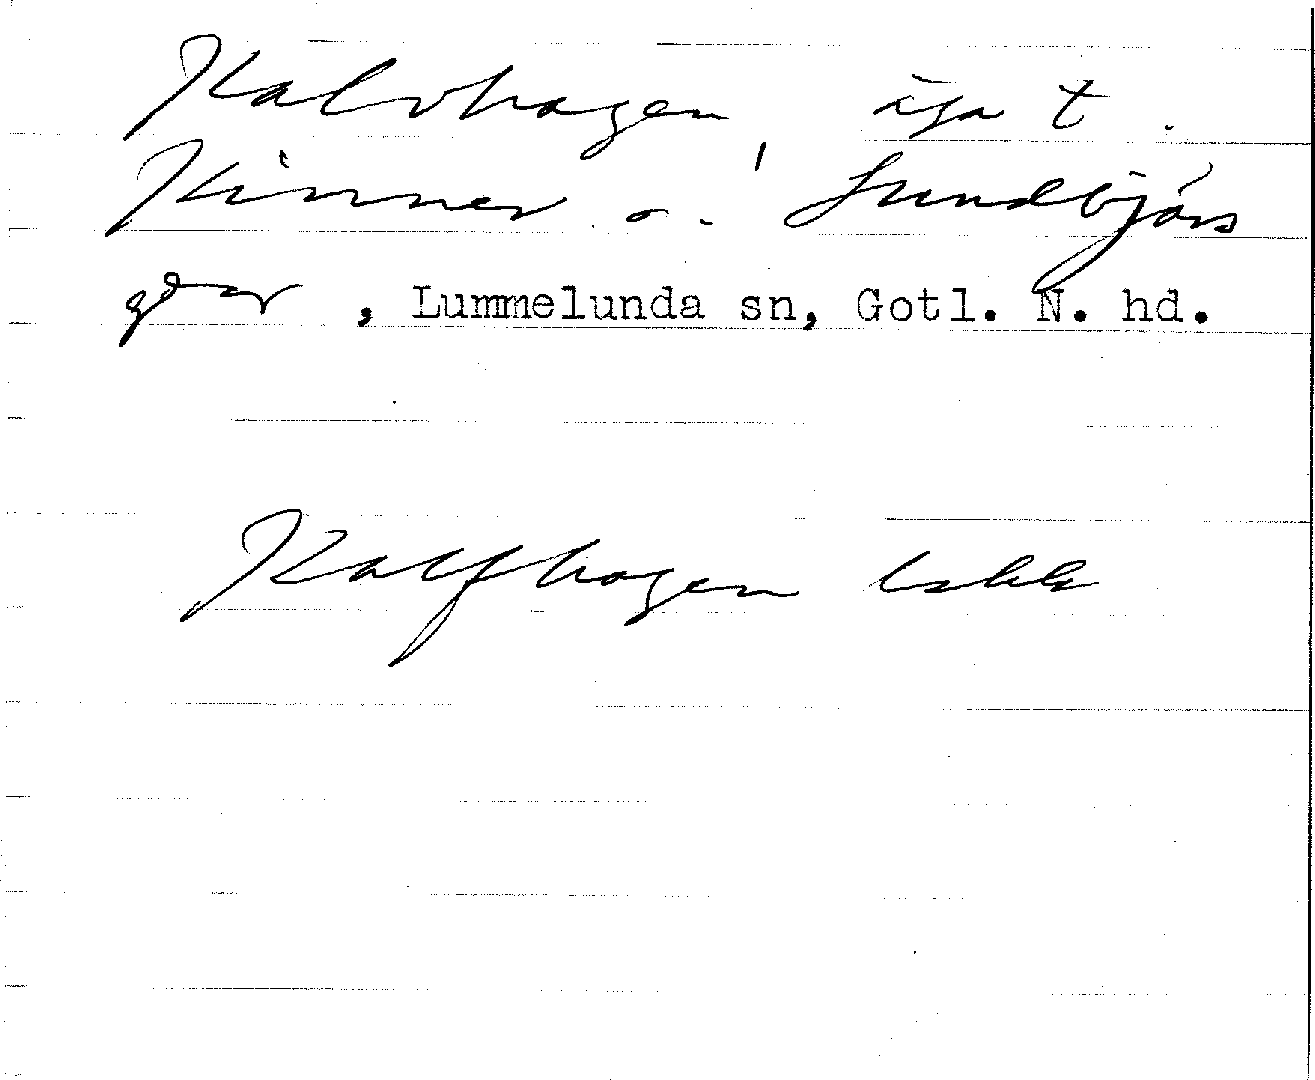 Kalvhagen, äga t.
Kinner o. Lundbjärs
gdar, Lummelunda sn, Gotl. N. hd.
Kalfhagen